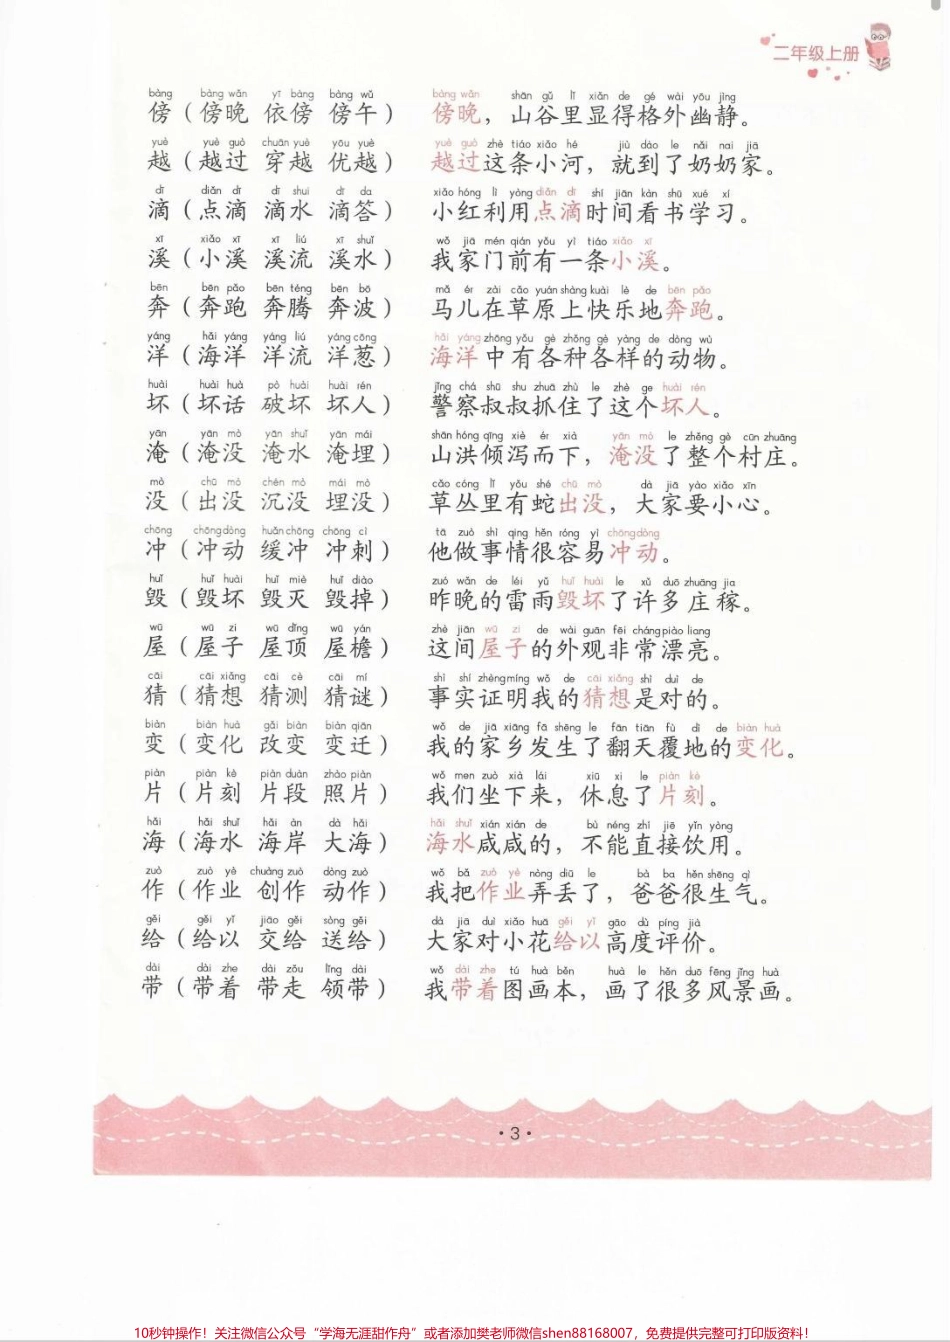 二年级上册
bàng bàng wǎn yī bàng bàng wǔ bàng wǎn shān gǔ lǐ xiǎn de gé wài yōu jìng
傍（傍晚 依傍 傍午） 傍晚，山谷里显得格外幽静。
yuè yuè guò chuān yuè yōu yuè yuè guò zhè tiáo xiǎo hé jiù dào le nǎi nai jiā
越（越过 穿越 优越） 越过这条小河，就到了奶奶家。
dī diǎn dī dī shuǐ dī da xiǎo hóng lì yòng diǎn dī shí jiān kàn shū xué xí
滴（点滴 滴水 滴答） 小红利用点滴时间看书学习。
xī xiǎo xī xī liú xī shuǐ wǒ jiā mén qián yǒu yì tiáo xiǎo xī
溪（小溪 溪流 溪水） 我家门前有一条小溪。
bēn bēn pǎo bēn téng bēn bō mǎ ér zài cǎo yuán shàng kuài lè de bēn pǎo
奔（奔跑 奔腾 奔波） 马儿在草原上快乐地奔跑。
yáng hǎi yáng yáng liú yáng cōng hǎi yáng zhōng yǒu gè zhǒng gè yàng de dòng wù
洋（海洋 洋流 洋葱） 海洋中有各种各样的动物。
huài huài huà pò huài huài rén jǐng chá shū shu zhuā zhù le zhè ge huài rén
坏（坏话 破坏 坏人） 警察叔叔抓住了这个坏人。
yān yān mò yān shuǐ yān mái shān hóng qīng xiè ér xià yān mò le zhěng gè cūn zhuāng
淹（淹没 淹水 淹埋） 山洪倾泻而下，淹没了整个村庄。
mò chū mò chén mò mái mò cǎo cóng lǐ yǒu shé chū mò dà jiā yào xiǎo xīn
没（出没 沉没 埋没） 草丛里有蛇出没，大家要小心。
chōng chōng dòng huǎn chōng chōng cì tā zuò shì qing hěn róng yì chōng dòng
冲（冲动 缓冲 冲刺） 他做事情很容易冲动。
huǐ huǐ huài huǐ miè huǐ diào zuó wǎn de léi yǔ huǐ huài le xǔ duō zhuāng jia
毁（毁坏 毁灭 毁掉） 昨晚的雷雨毁坏了许多庄稼。
wū wū zi wū dǐng wū yán zhè jiān wū zi de wài guān fēi cháng piào liang
屋（屋子 屋顶 屋檐） 这间屋子的外观非常漂亮。
cāi cāi xiǎng cāi cè cāi mí shì shí zhèng míng wǒ de cāi xiǎng shì duì de
猜（猜想 猜测 猜谜） 事实证明我的猜想是对的。
biàn biàn huà gǎi biàn biàn qiān wǒ de jiā xiāng fā shēng le fān tiān fù dì de biàn huà
变（变化 改变 变迁） 我的家乡发生了翻天覆地的变化。
piàn piàn kè piàn duàn zhào piàn wǒ men zuò xià lái xiū xi le piàn kè
片（片刻 片段 照片） 我们坐下来，休息了片刻。
hǎi hǎi shuǐ hǎi àn dà hǎi hǎi shuǐ xián xián de bù néng zhí jiē yǐn yòng
海（海水 海岸 大海） 海水咸咸的，不能直接饮用。
zuò zuò yè chuàng zuò dòng zuò wǒ bǎ zuò yè nòng diū le bà ba hěn shēng qì
作（作业 创作 动作） 我把作业弄丢了，爸爸很生气。
gěi gěi yǐ jiāo gěi sòng gěi dà jiā duì xiǎo huā gěi yǐ gāo dù píng jià
给（给以 交给 送给） 大家对小花给以高度评价。
dài dài zhe dài zǒu lǐng dài wǒ dài zhe tú huà běn huà le hěn duō fēng jǐng huà
带（带着 带走 领带） 我带着图画本，画了很多风景画。
·3·
10秒钟操作！关注微信公众号“学海无涯甜作舟”或者添加樊老师微信shen88168007，免费提供完整可打印版资料！